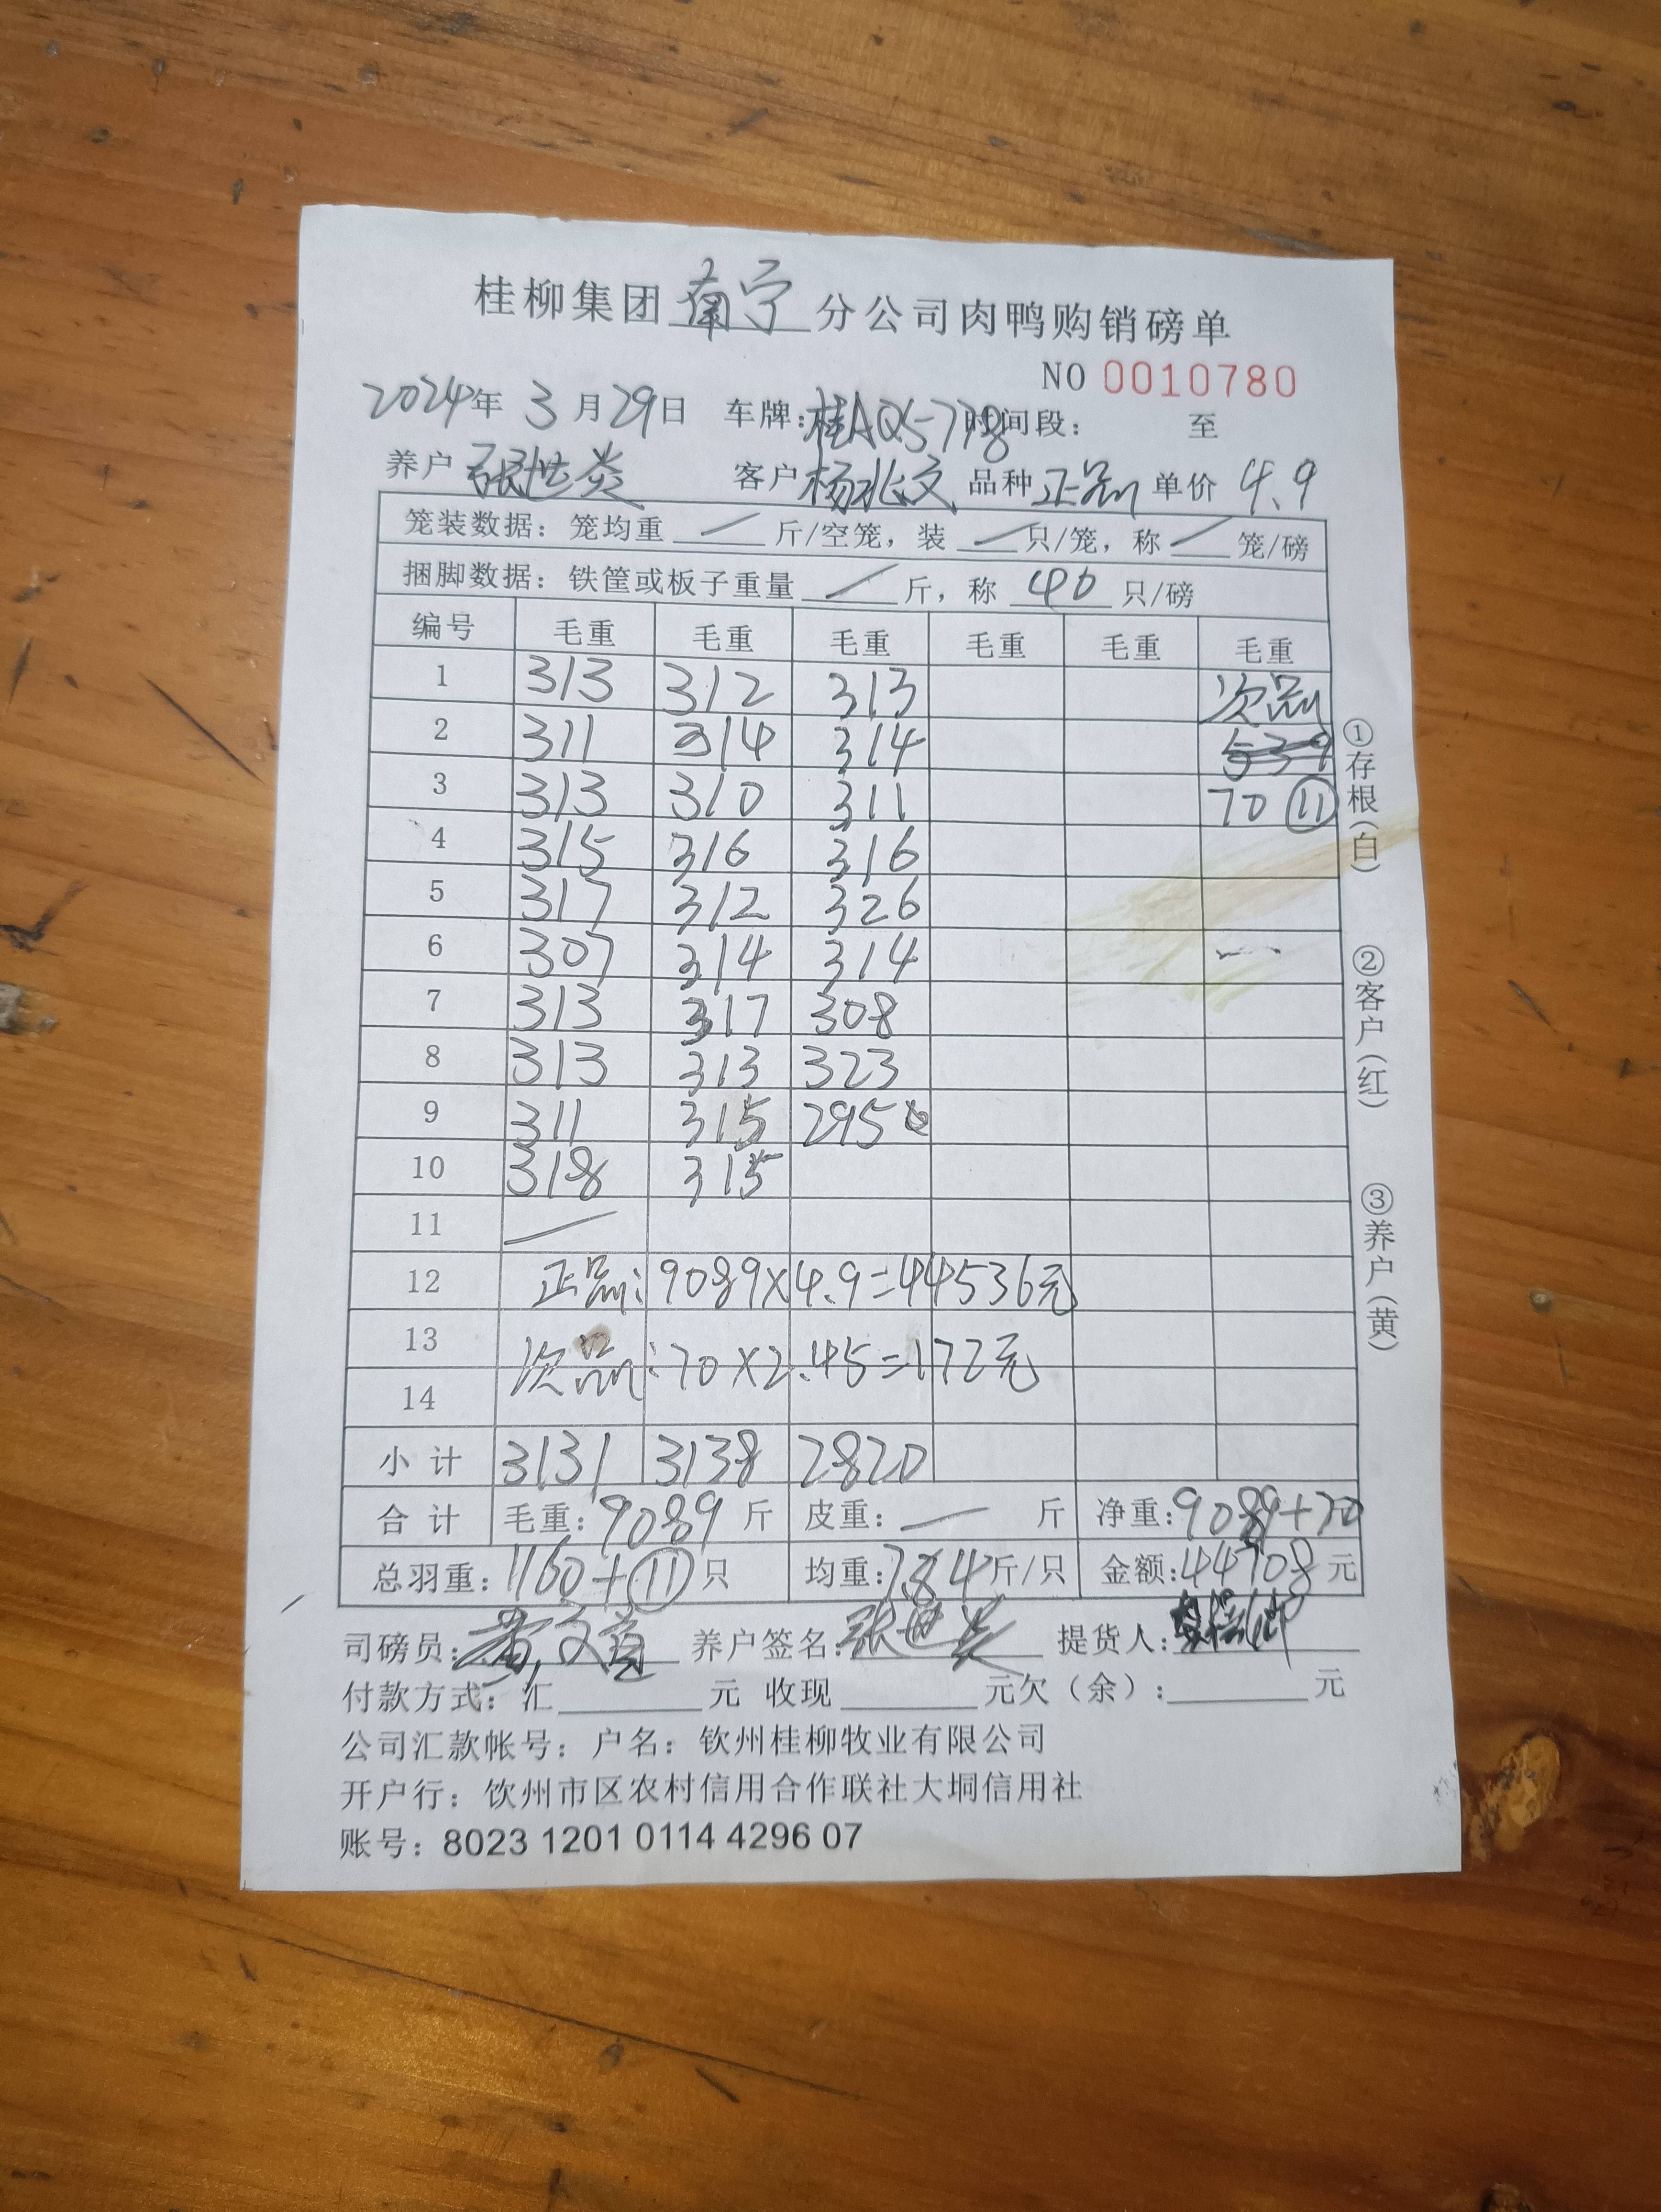 桂柳集团南宁分公司肉鸭购销磅单
NO 0010780
2024年 3月29日 车牌:桂AQ5778时间段: 至
养户 张世炎 客户 杨兆文 品种 正品 单价 4.9
笼装数据: 笼均重 — 斤/空笼, 装 — 只/笼, 称 — 笼/磅
捆脚数据: 铁筐或板子重量 — 斤, 称 40 只/磅
编号 毛重 毛重 毛重 毛重 毛重 毛重
1 313 312 313 次品
2 311 314 314 539
3 313 310 311 70 ⑪
4 315 316 316
5 317 312 326
6 307 314 314 —
7 313 317 308
8 313 313 323
9 311 315 295
10 318 315
11 —
12 正品:9089×4.9=44536元
13 次品:70×2.45=172元
14
小计 3131 3138 2820
合计 毛重:9089 斤 皮重: — 斤 净重:9089+70
总羽重:1160+⑪只 均重:7.84斤/只 金额:44708元
司磅员: 养户签名:张世炎 提货人:
付款方式: 汇 元 收现 元欠(余): 元
公司汇款帐号: 户名: 钦州桂柳牧业有限公司
开户行: 饮州市区农村信用合作联社大垌信用社
账号: 8023 1201 0114 4296 07
①存根(白) ②客户(红) ③养户(黄)